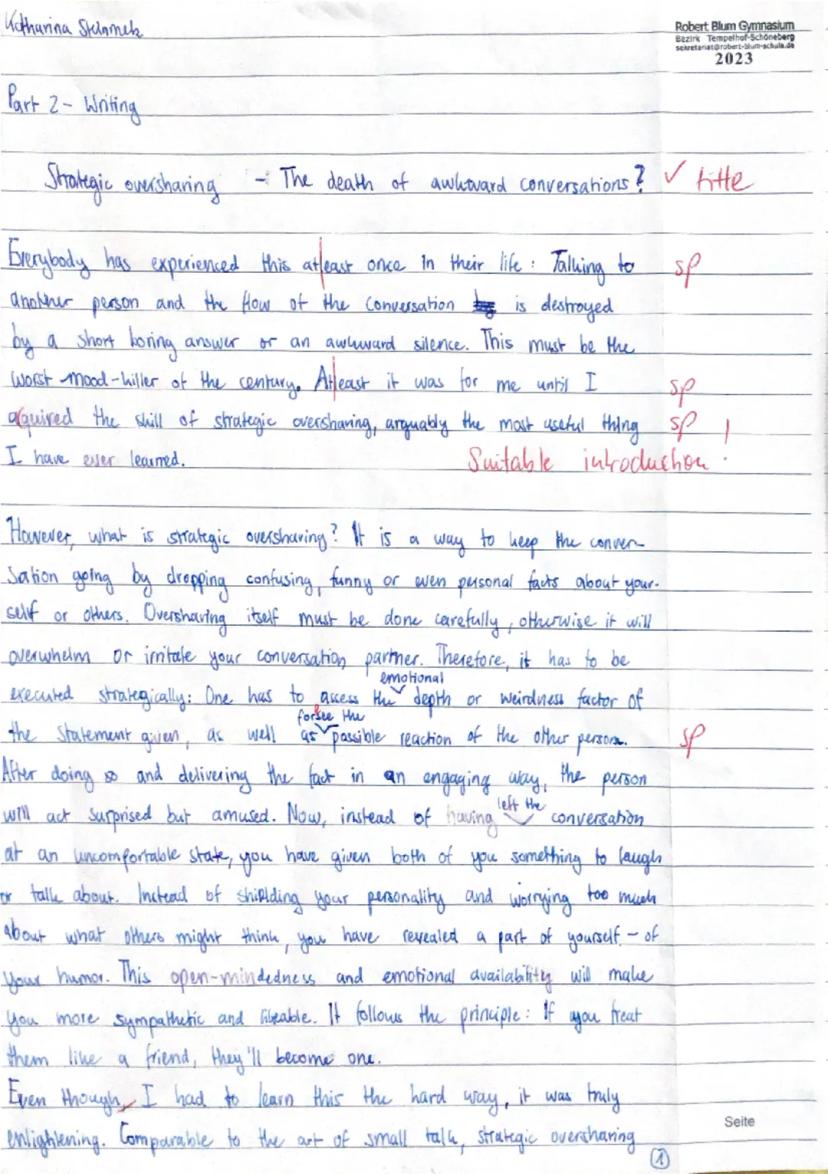 Katharina Steinmetz
Robert Blum Gymnasium
Bezirk Tempelhof-Schöneberg
sekretariat@robert-blum-schule.de
2023
Part 2 - Writing
Strategic oversharing - The death of awkward conversations? ✓ title
Everybody has experienced this atleast once in their life: Talking to sp
another person and the flow of the conversation is destroyed
by a short boring answer or an awkward silence. This must be the
worst mood-killer of the century. Atleast it was for me until I sp
aquired the skill of strategic oversharing, arguably the most useful thing sp
I have ever learned. Suitable introduction!
However, what is strategic oversharing? It is a way to keep the conver-
sation going by dropping confusing, funny or even personal facts about your-
self or others. Oversharing itself must be done carefully, otherwise it will
overwhelm or irritate your conversation partner. Therefore, it has to be
executed strategically: One has to access the emotional depth or weirdness factor of
the statement given, as well as forsee the possible reaction of the other person. sp
After doing so and delivering the fact in an engaging way, the person
will act surprised but amused. Now, instead of having left the conversation
at an uncomfortable state, you have given both of you something to laugh
or talk about. Instead of shielding your personality and worrying too much
about what others might think, you have revealed a part of yourself - of
your humor. This open-mindedness and emotional availability will make
you more sympathetic and likeable. It follows the principle: If you treat
them like a friend, they'll become one.
Even though, I had to learn this the hard way, it was truly
enlightening. Comparable to the art of small talk, strategic oversharing
Seite
1